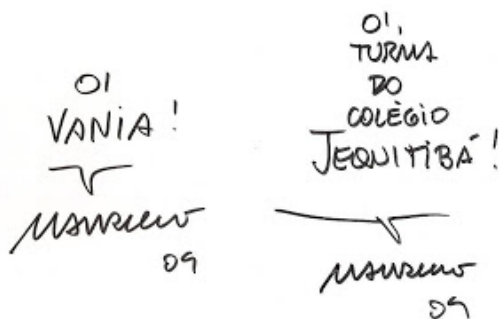 OI
VANIA!
MAURICIO
09
OI,
TURMA
DO
COLÉGIO
JEQUITIBÁ!
MAURICIO
09